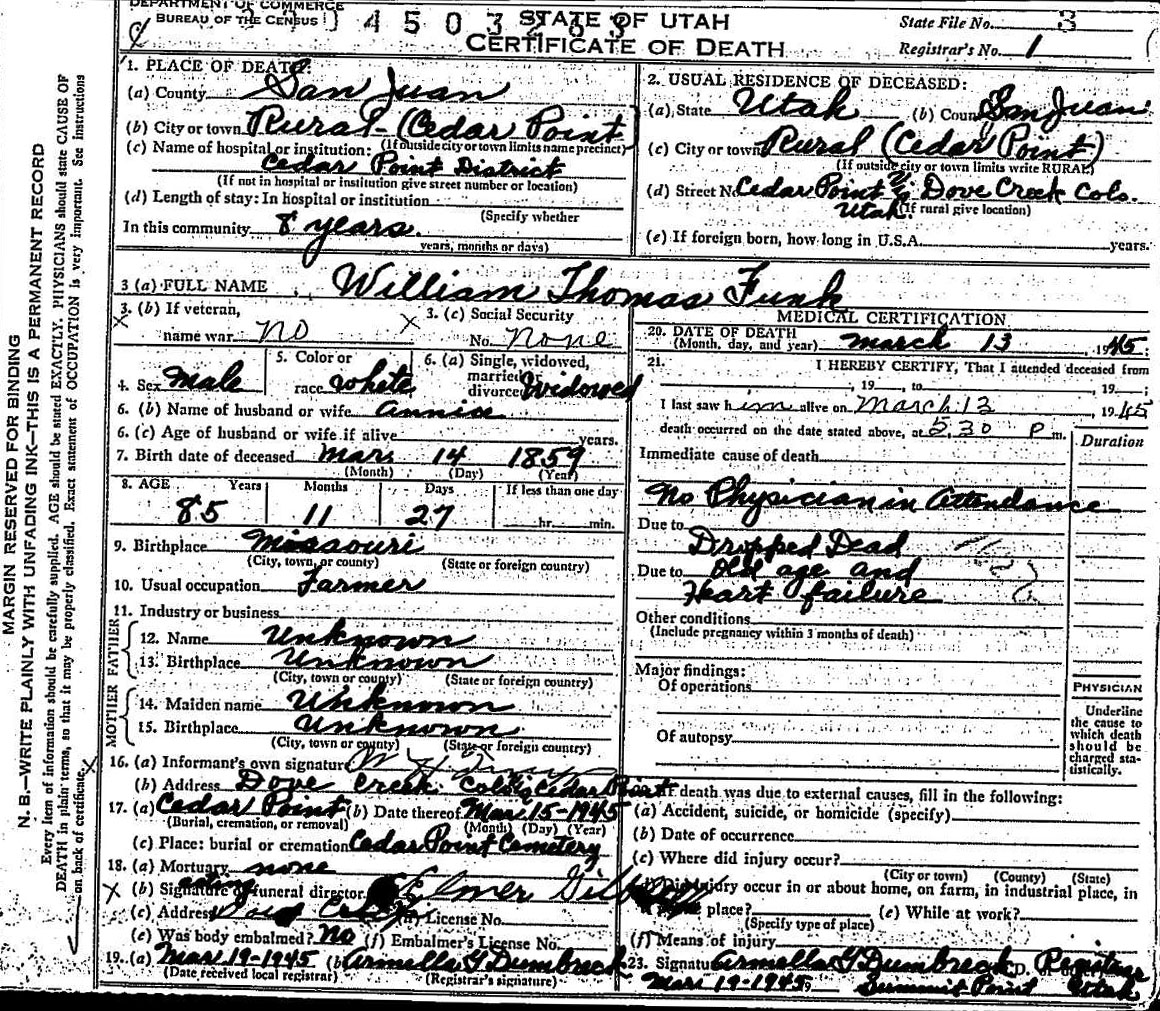 DEPARTMENT OF COMMERCE
BUREAU OF THE CENSUS
STATE OF UTAH
CERTIFICATE OF DEATH
State File No. 3
Registrar's No. 1
MARGIN RESERVED FOR BINDING
N. B.—WRITE PLAINLY WITH UNFADING INK—THIS IS A PERMANENT RECORD
Every item of information should be carefully supplied. AGE should be stated EXACTLY. PHYSICIANS should state CAUSE OF
DEATH in plain terms, so that it may be properly classified. Exact statement of OCCUPATION is very important. See instructions
on back of certificate.
1. PLACE OF DEATH:
(a) County San Juan
(b) City or town Rural - (Cedar Point)
(If outside city or town limits name precinct)
(c) Name of hospital or institution:
Cedar Point District
(If not in hospital or institution give street number or location)
(d) Length of stay: In hospital or institution
(Specify whether
In this community 8 years.
years, months or days)
2. USUAL RESIDENCE OF DECEASED:
(a) State Utah (b) County San Juan
(c) City or town Rural (Cedar Point)
(If outside city or town limits write RURAL)
(d) Street No. Cedar Point % Dove Creek Colo.
Utah (If rural give location)
(e) If foreign born, how long in U.S.A. years.
3 (a) FULL NAME William Thomas Funk
3. (b) If veteran, name war no
3. (c) Social Security No. None
4. Sex Male
5. Color or race White
6. (a) Single, widowed, married, divorced Widowed
6. (b) Name of husband or wife Annise
6. (c) Age of husband or wife if alive years.
7. Birth date of deceased Mar. 14 1859
(Month) (Day) (Year)
8. AGE Years Months Days If less than one day
85 11 27 hr. min.
9. Birthplace Missouri
(City, town, or county) (State or foreign country)
10. Usual occupation Farmer
11. Industry or business
FATHER
12. Name Unknown
13. Birthplace Unknown
(City, town or county) (State or foreign country)
MOTHER
14. Maiden name Unknown
15. Birthplace Unknown
(City, town or county) (State or foreign country)
16. (a) Informant's own signature
(b) Address Dove Creek Colo % Cedar Point
17. (a) Cedar Point (b) Date thereof Mar. 15-1945
(Burial, cremation, or removal) (Month) (Day) (Year)
(c) Place: burial or cremation Cedar Point Cemetery
18. (a) Mortuary none
(b) Signature of funeral director Elmer
(c) Address (d) License No.
(e) Was body embalmed? No (f) Embalmer's License No.
19. (a) Mar 19-1945 (b) Armella G Dumbreck
(Date received local registrar) (Registrar's signature)
MEDICAL CERTIFICATION
20. DATE OF DEATH
(Month, day, and year) March 13, 1945.
21. I HEREBY CERTIFY, That I attended deceased from
, 19 , to , 19 ;
I last saw him alive on March 13, 1945
death occurred on the date stated above, at 5.30 P m.
Duration
Immediate cause of death
No Physician in Attendance
Due to Dropped Dead
Due to Old age and
Heart failure
Other conditions
(Include pregnancy within 3 months of death)
Major findings:
Of operations
Of autopsy
PHYSICIAN
Underline
the cause to
which death
should be
charged sta-
tistically.
If death was due to external causes, fill in the following:
(a) Accident, suicide, or homicide (specify)
(b) Date of occurrence
(c) Where did injury occur?
(City or town) (County) (State)
Did injury occur in or about home, on farm, in industrial place, in
place? (e) While at work?
(Specify type of place)
(f) Means of injury
23. Signature Armella G Dumbreck Registrar
Mar 19-1945 Summit Point Utah